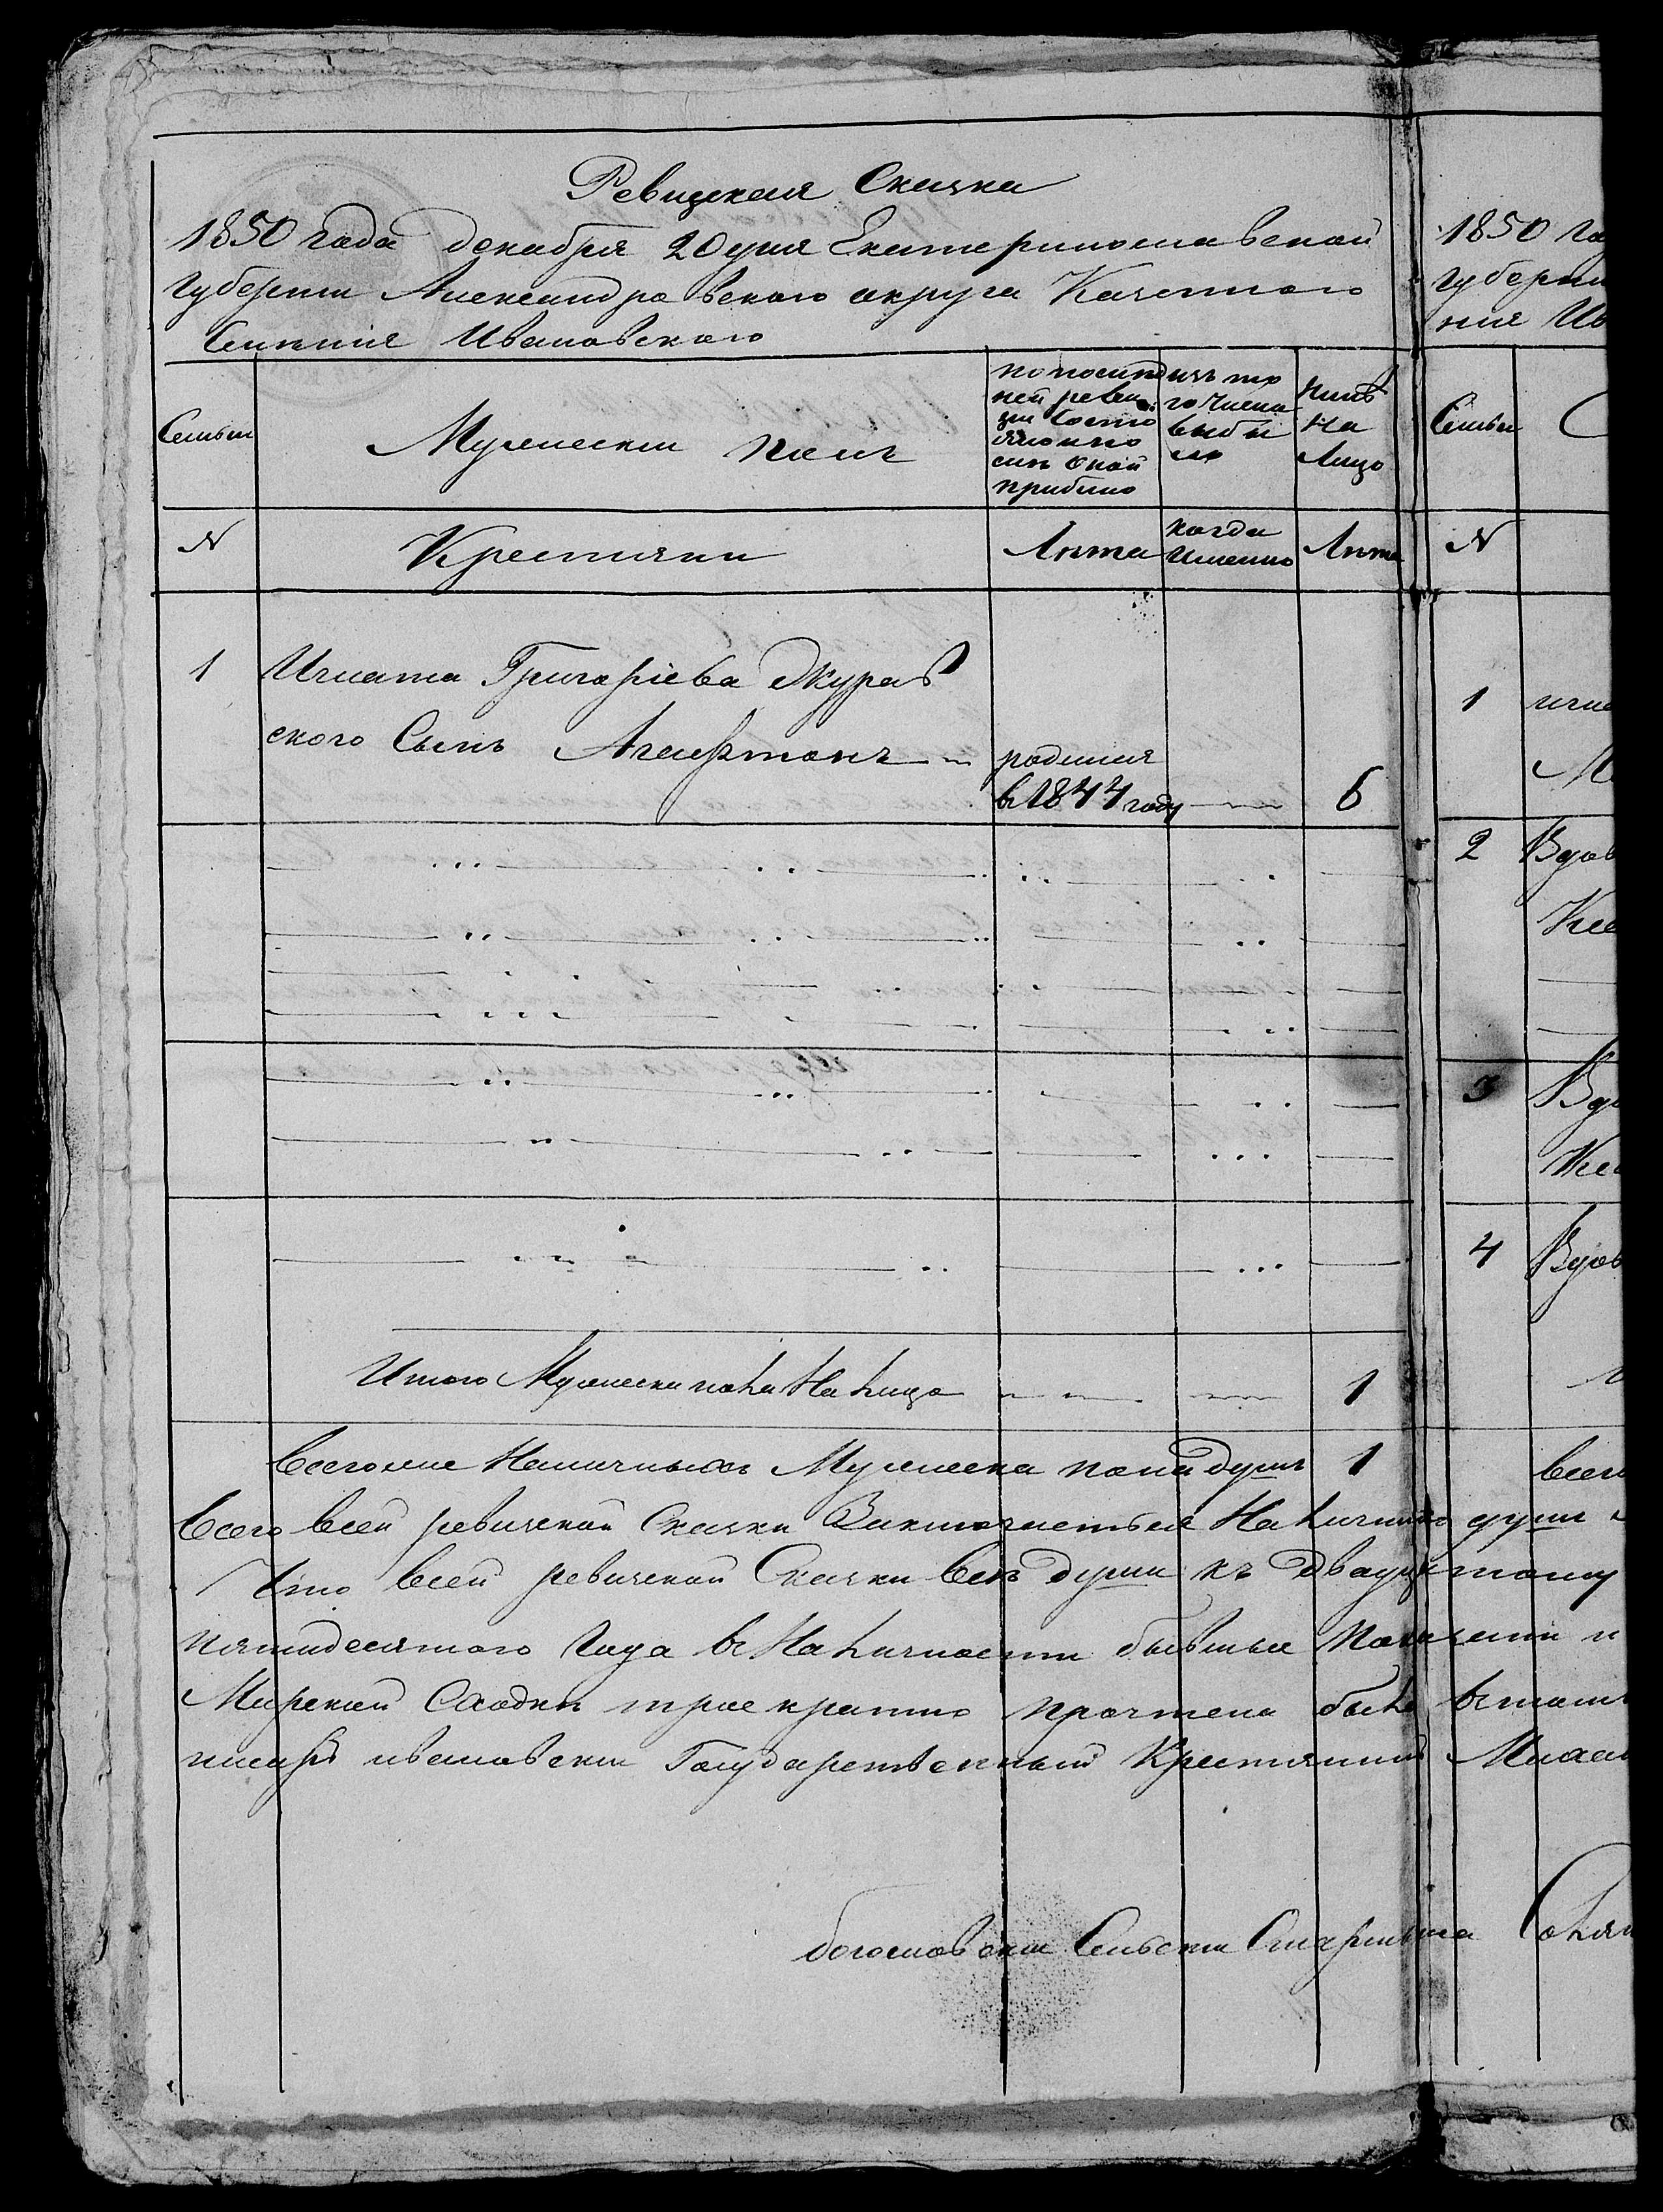 Ревизская Сказка
1850 года декабря 20 дня Екатеринославской
губернии Александровскаго округа Казеннаго
Селенія Ивановскаго
Семьи
Мужескій полъ
по послѣд
ней реви
зіи состо
яло и по
слѣ оной
прибыло
изъ то
го числа
выбы
ло
нынѣ
на
лицо
N
Крестяни
Лѣта
когда
именно
Лѣта
1
Игната Григоріева Жураѣ
ского Сынъ Агафтонъ
родился
в 1844 году
6
Итого Мужеска пола на лицо 1
Всего же Наличныхъ Мужеска пола душъ 1
Всего в сей ревизской Сказки Заключается На личныхъ душъ
Что в сей ревизской Сказки всѣ души къ двадцатому
пятидесятого Года в На личности бывшые Показаны и
Мирской Сходки трое кратно прочтена была в томъ
писарь ивановски Государственный Крестянинъ Миха
богословски Сельски Старшына
1850 го
губерни
ния Ив
Семьи
N
1 игна
2 Вдов
3 Вдо
4 Вдов
всего